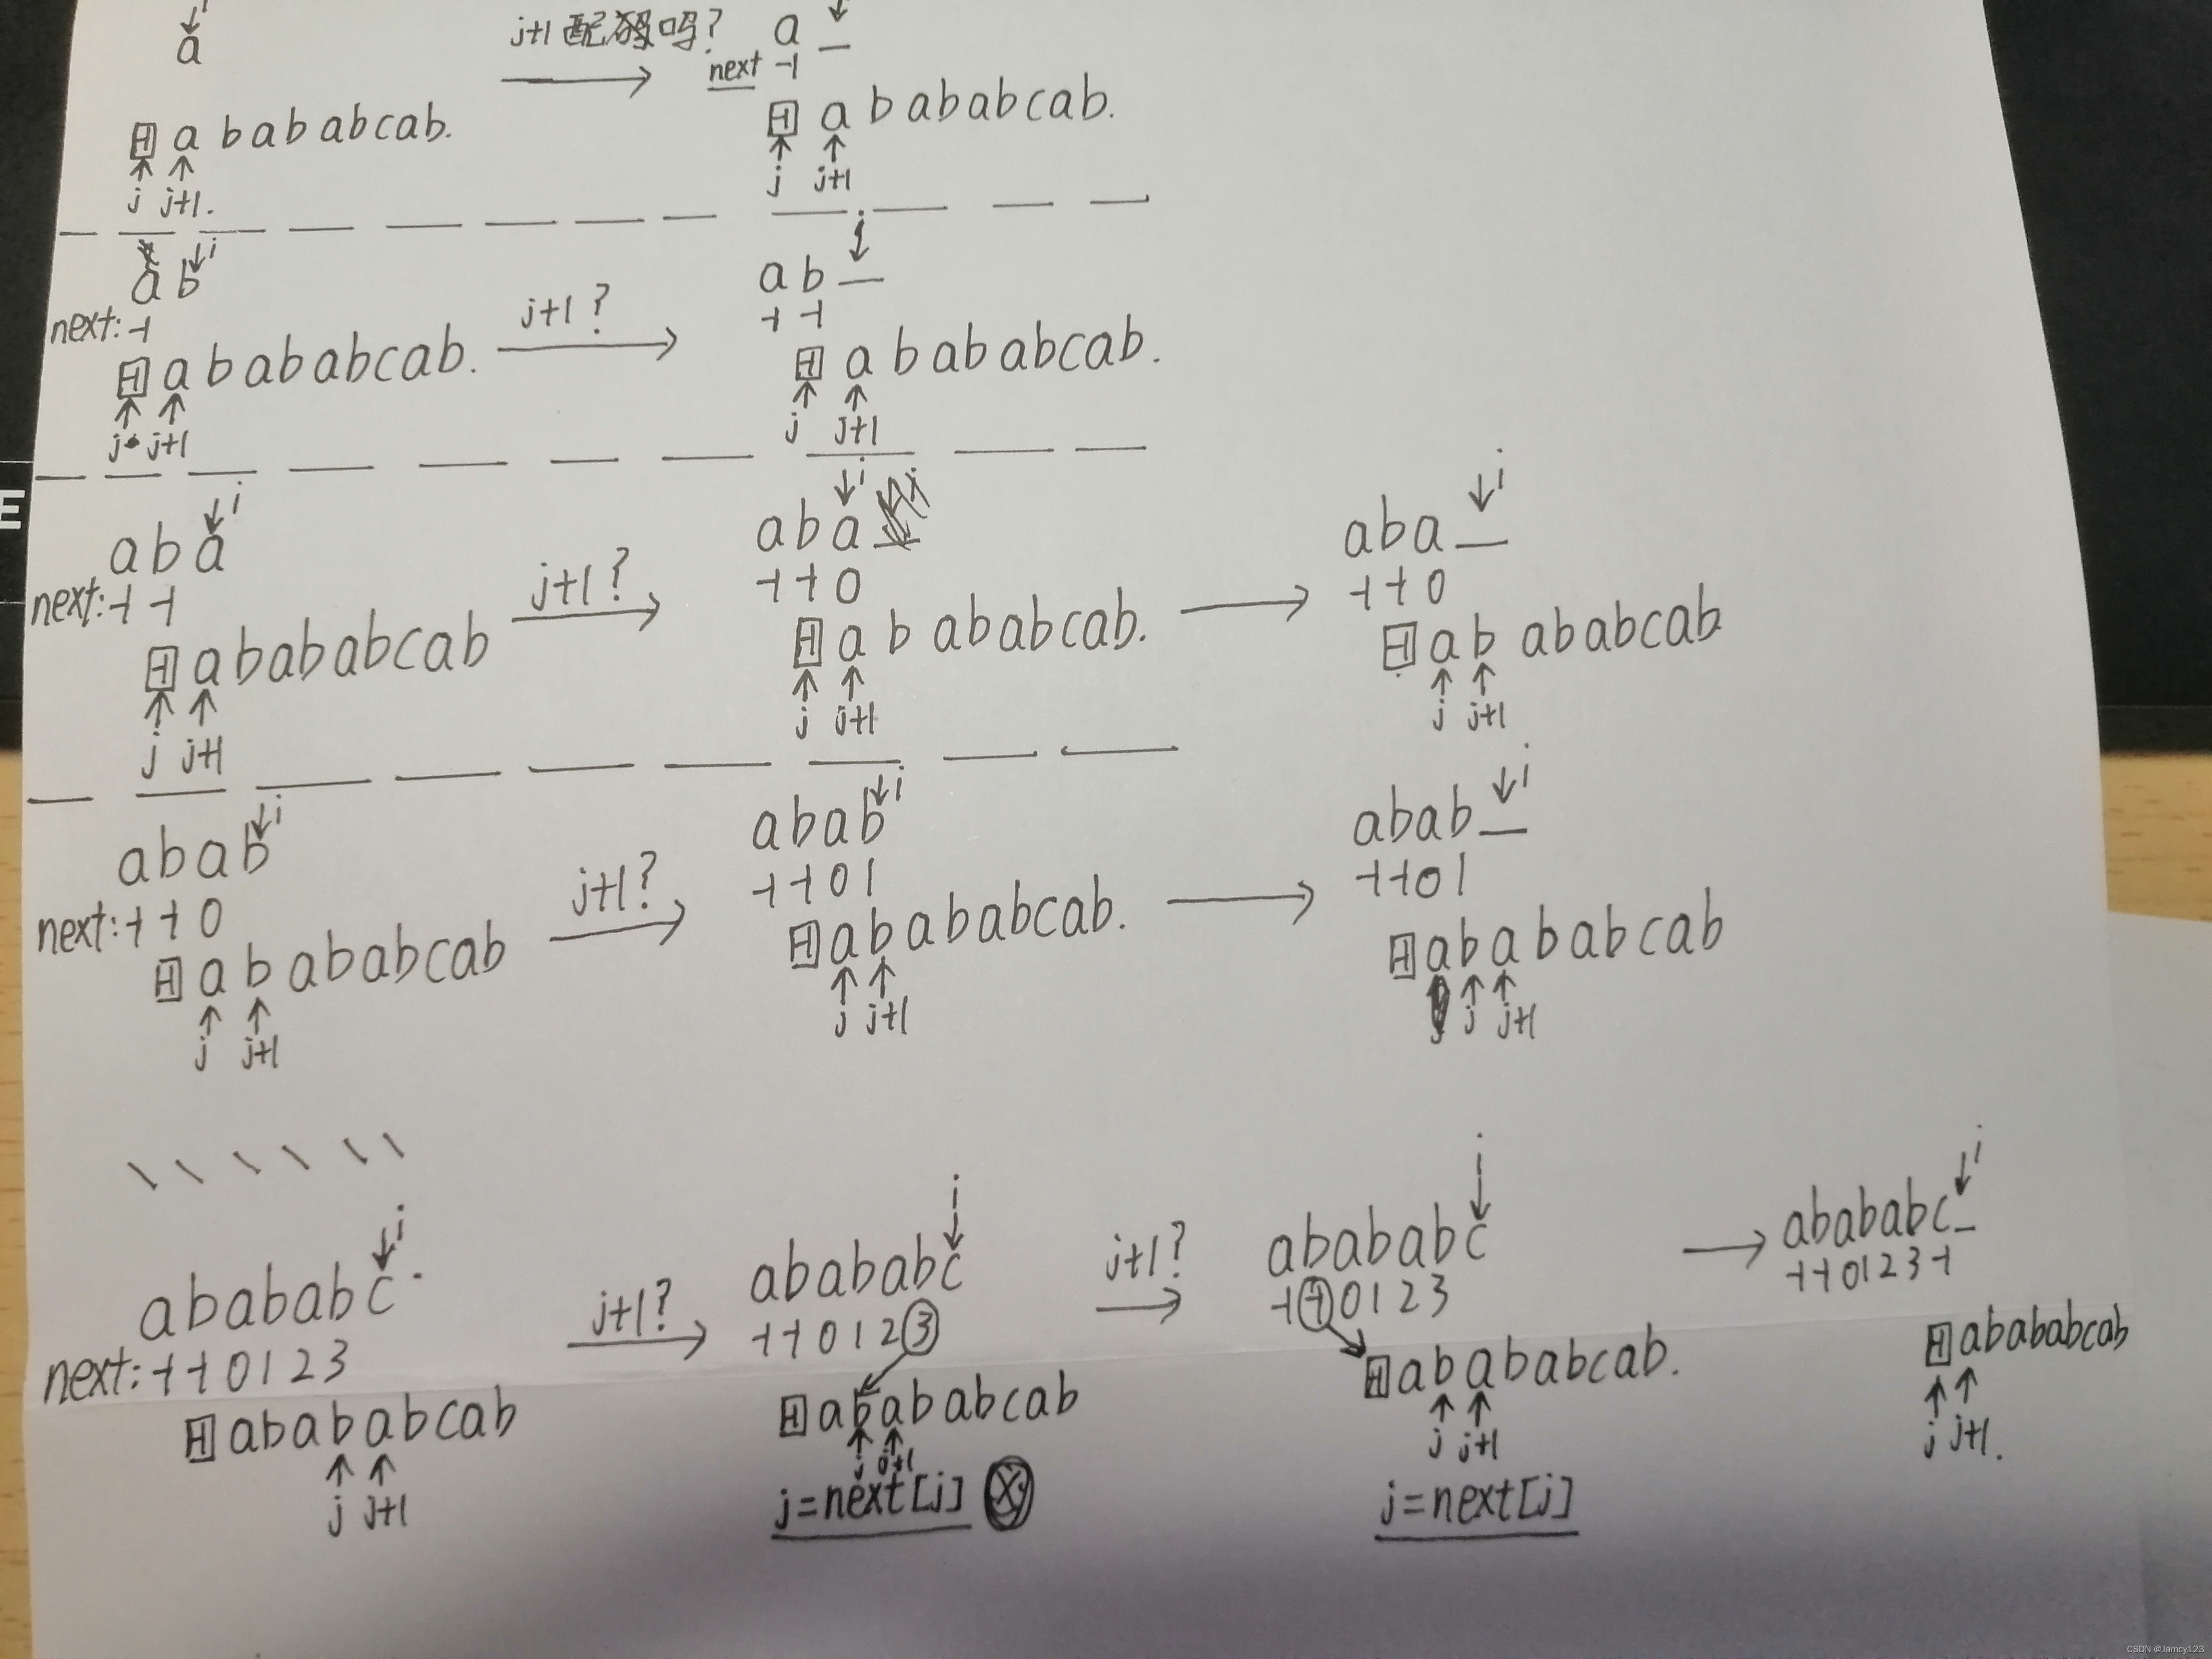 i
a
j+1 配吗?
a _
next -1
-1 a b a b a b c a b.
j j+1.
-1 a b a b a b c a b.
j j+1
a b i
next: -1
-1 a b a b a b c a b.
j j+1
j+1 ?
i
a b _
-1 -1
-1 a b a b a b c a b.
j j+1
i
a b a
next: -1 -1
-1 a b a b a b c a b
j j+1
j+1 ?
i
a b a
-1 -1 0
-1 a b a b a b c a b.
j j+1
i
a b a _
-1 -1 0
-1 a b a b a b c a b
j j+1
i
a b a b
next: -1 -1 0
-1 a b a b a b c a b
j j+1
j+1 ?
i
a b a b
-1 -1 0 1
-1 a b a b a b c a b.
j j+1
i
a b a b _
-1 -1 0 1
-1 a b a b a b c a b
j j+1
i
a b a b a b c
next: -1 -1 0 1 2 3
-1 a b a b a b c a b
j j+1
j+1 ?
i
a b a b a b c
-1 -1 0 1 2 3
-1 a b a b a b c a b
j j+1
j=next[j]
j+1 ?
i
a b a b a b c
-1 -1 0 1 2 3
-1 a b a b a b c a b.
j j+1
j=next[j]
i
a b a b a b c _
-1 -1 0 1 2 3 -1
-1 a b a b a b c a b
j j+1.
E
CSDN @Jamcy123